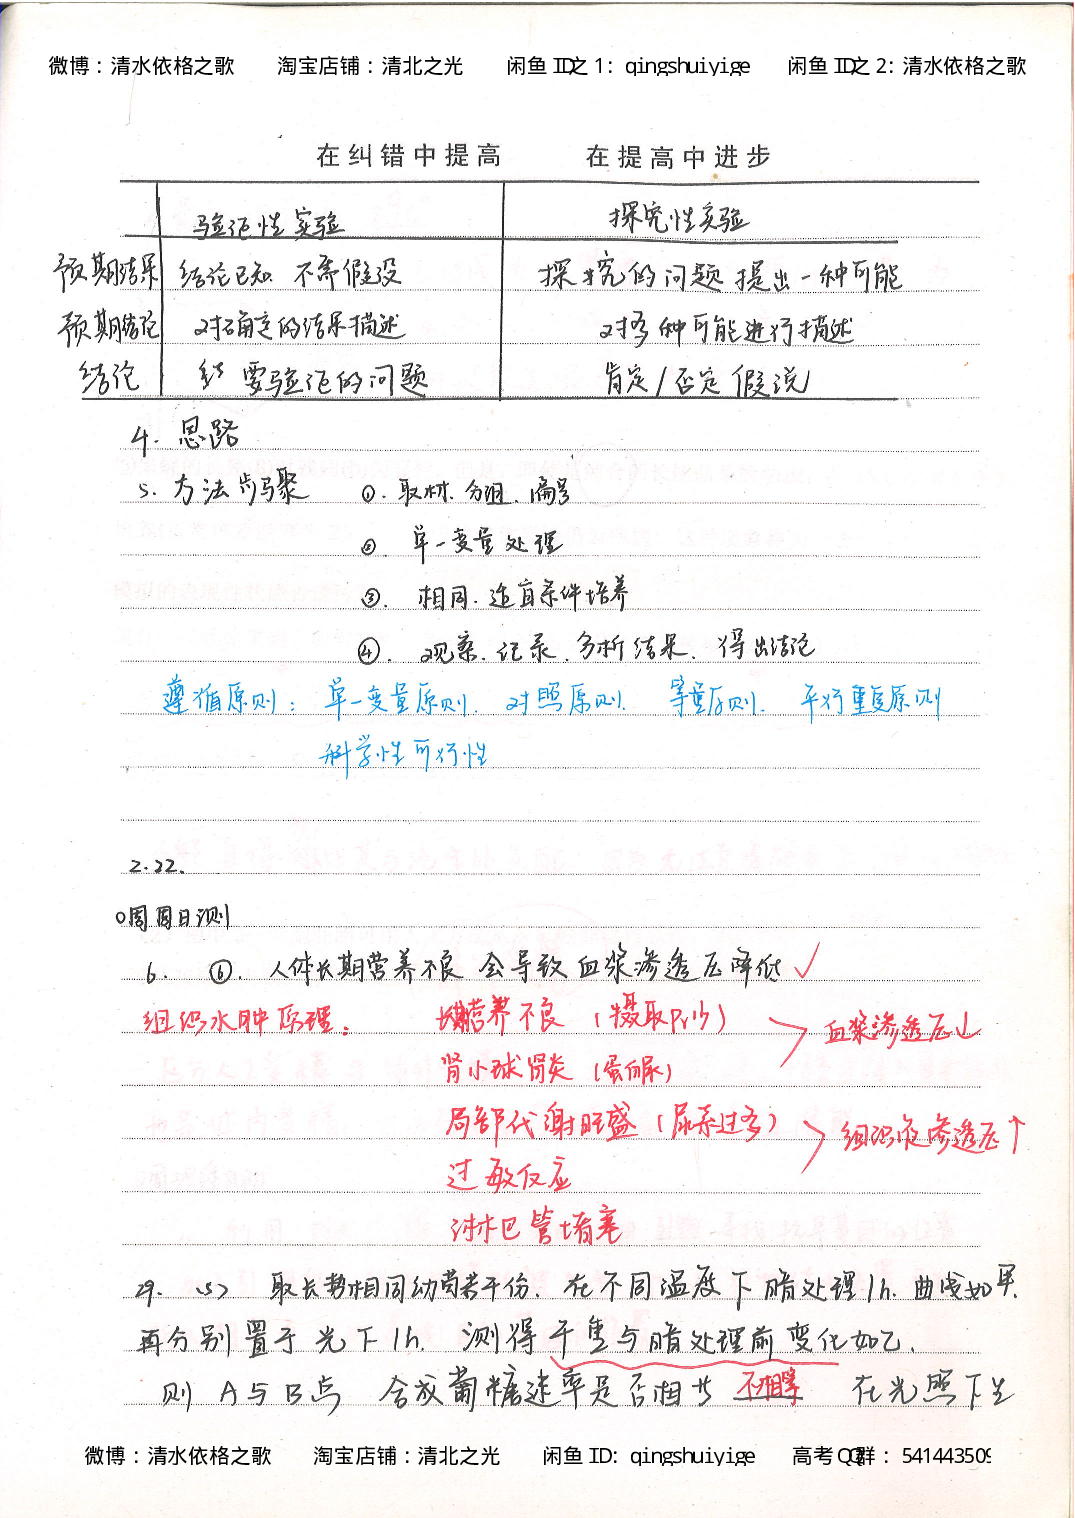 微博：清水依格之歌 淘宝店铺：清北之光 闲鱼 ID之 1: qingshuiyige 闲鱼 ID之 2: 清水依格之歌
在纠错中提高 在提高中进步
验证性实验 探究性实验
预期结果 结论已知 不需假设 探究的问题 提出一种可能
预期结论 对确定的结果描述 对多种可能进行描述
结论 要验证的问题 肯定/否定 假说
4. 思路
5. 方法步骤 ①. 取材. 分组. 编号
②. 单一变量处理
③. 相同. 适宜条件培养
④. 观察. 记录. 分析结果. 得出结论
遵循原则： 单一变量原则. 对照原则. 等量原则. 平行重复原则
科学性 可行性
2.22.
周周日测
6. ⑥. 人体长期营养不良 会导致血浆渗透压降低 ✓
组织水肿原理： 长期营养不良（摄取Pr少） 血浆渗透压↓
肾小球肾炎（蛋白尿）
局部代谢旺盛（尿素过多） 组织液渗透压↑
过敏反应
淋巴管堵塞
29. (5) 取长势相同幼苗若干份. 在不同温度下暗处理1h. 曲线如甲.
再分别置于光下1h. 测得干重与暗处理前变化如乙.
则A与B点 合成葡萄糖速率是否相等 不相等 在光照下
微博：清水依格之歌 淘宝店铺：清北之光 闲鱼 ID: qingshuiyige 高考QQ群：541443509